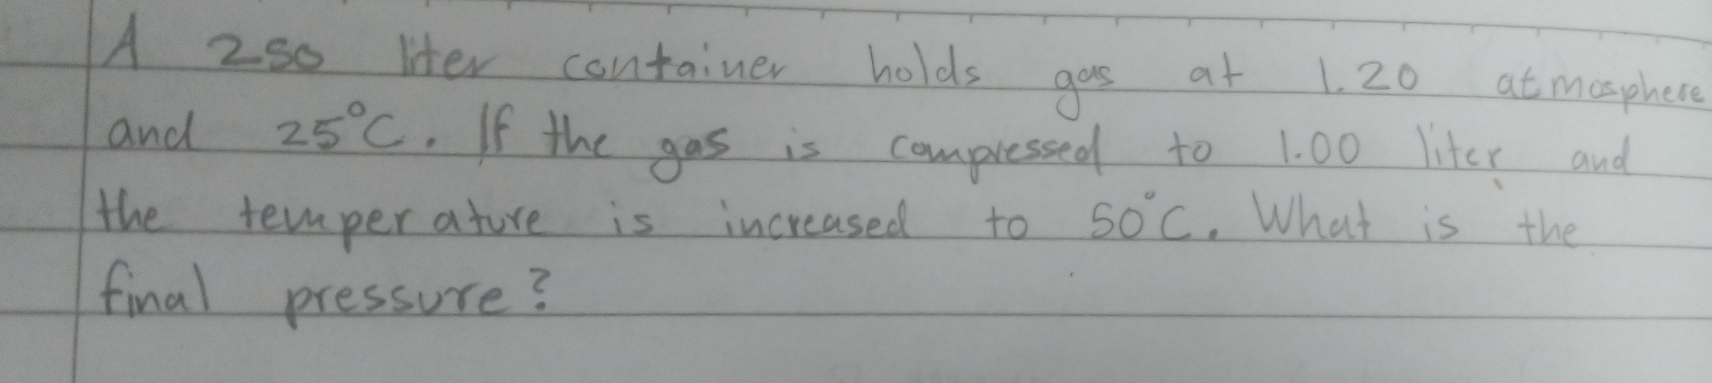 A 250 liter container holds gas at 1.20 atmosphere
and 25°C. If the gas is compressed to 1.00 liter and
the temperature is increased to 50°C. What is the
final pressure?